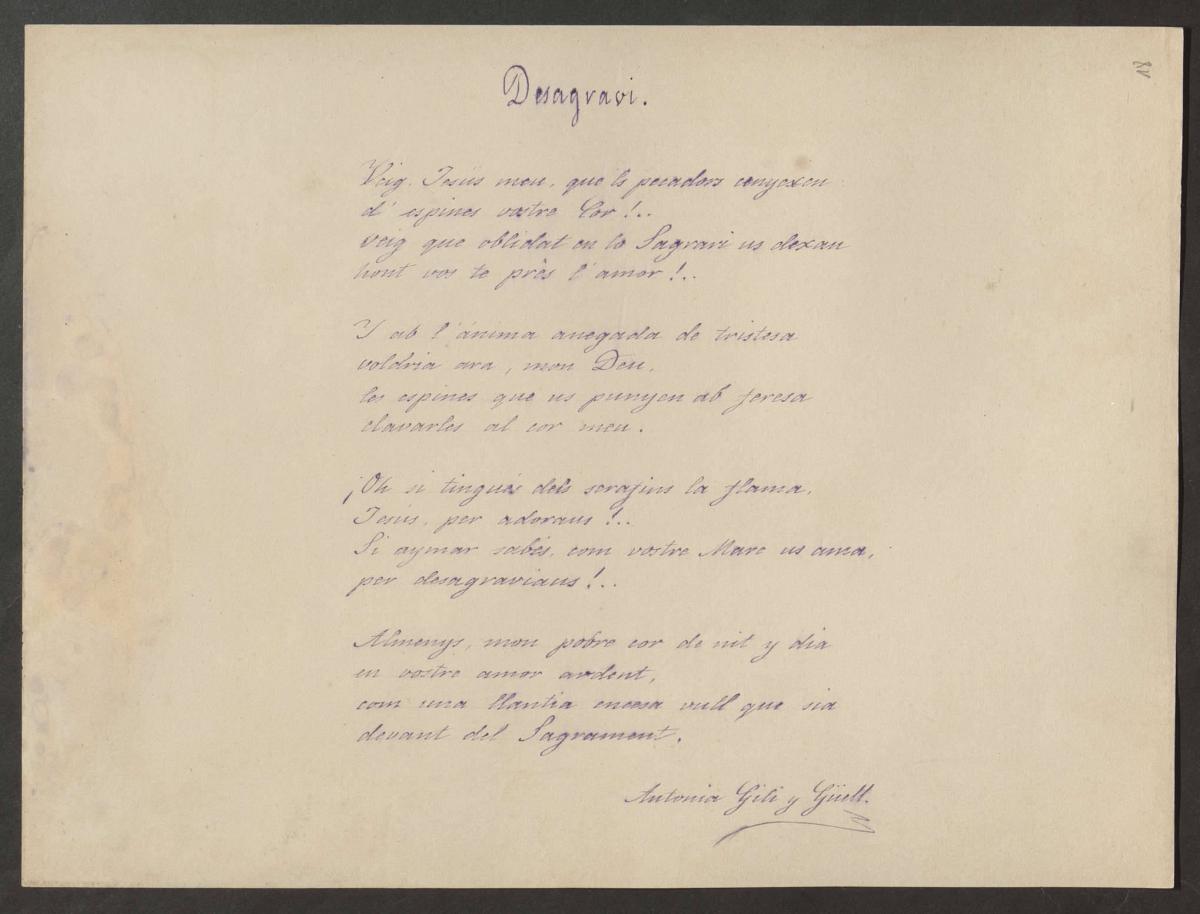 18
Desagravi.
Veig, Jesús meu, que 'ls pecadors cenyexen
d' espines vostre Cor!..
veig que oblidat en lo Sagrari us dexan
hont vos te près l' amor!..
Y ab l' ánima anegada de tristesa
voldria ara, mon Deu,
les espines que us punyen ab feresa
clavarles al cor meu.
¡Oh si tingués dels serafins la flama,
Jesús, per adoraus!..
Si aymar sabés, com vostre Mare us ama,
per desagraviaus!..
Almenys, mon pobre cor de nit y dia
en vostre amor ardent,
com una llantia encesa vull que sia
devant del Sagrament.
Antonia Gili y Güell.